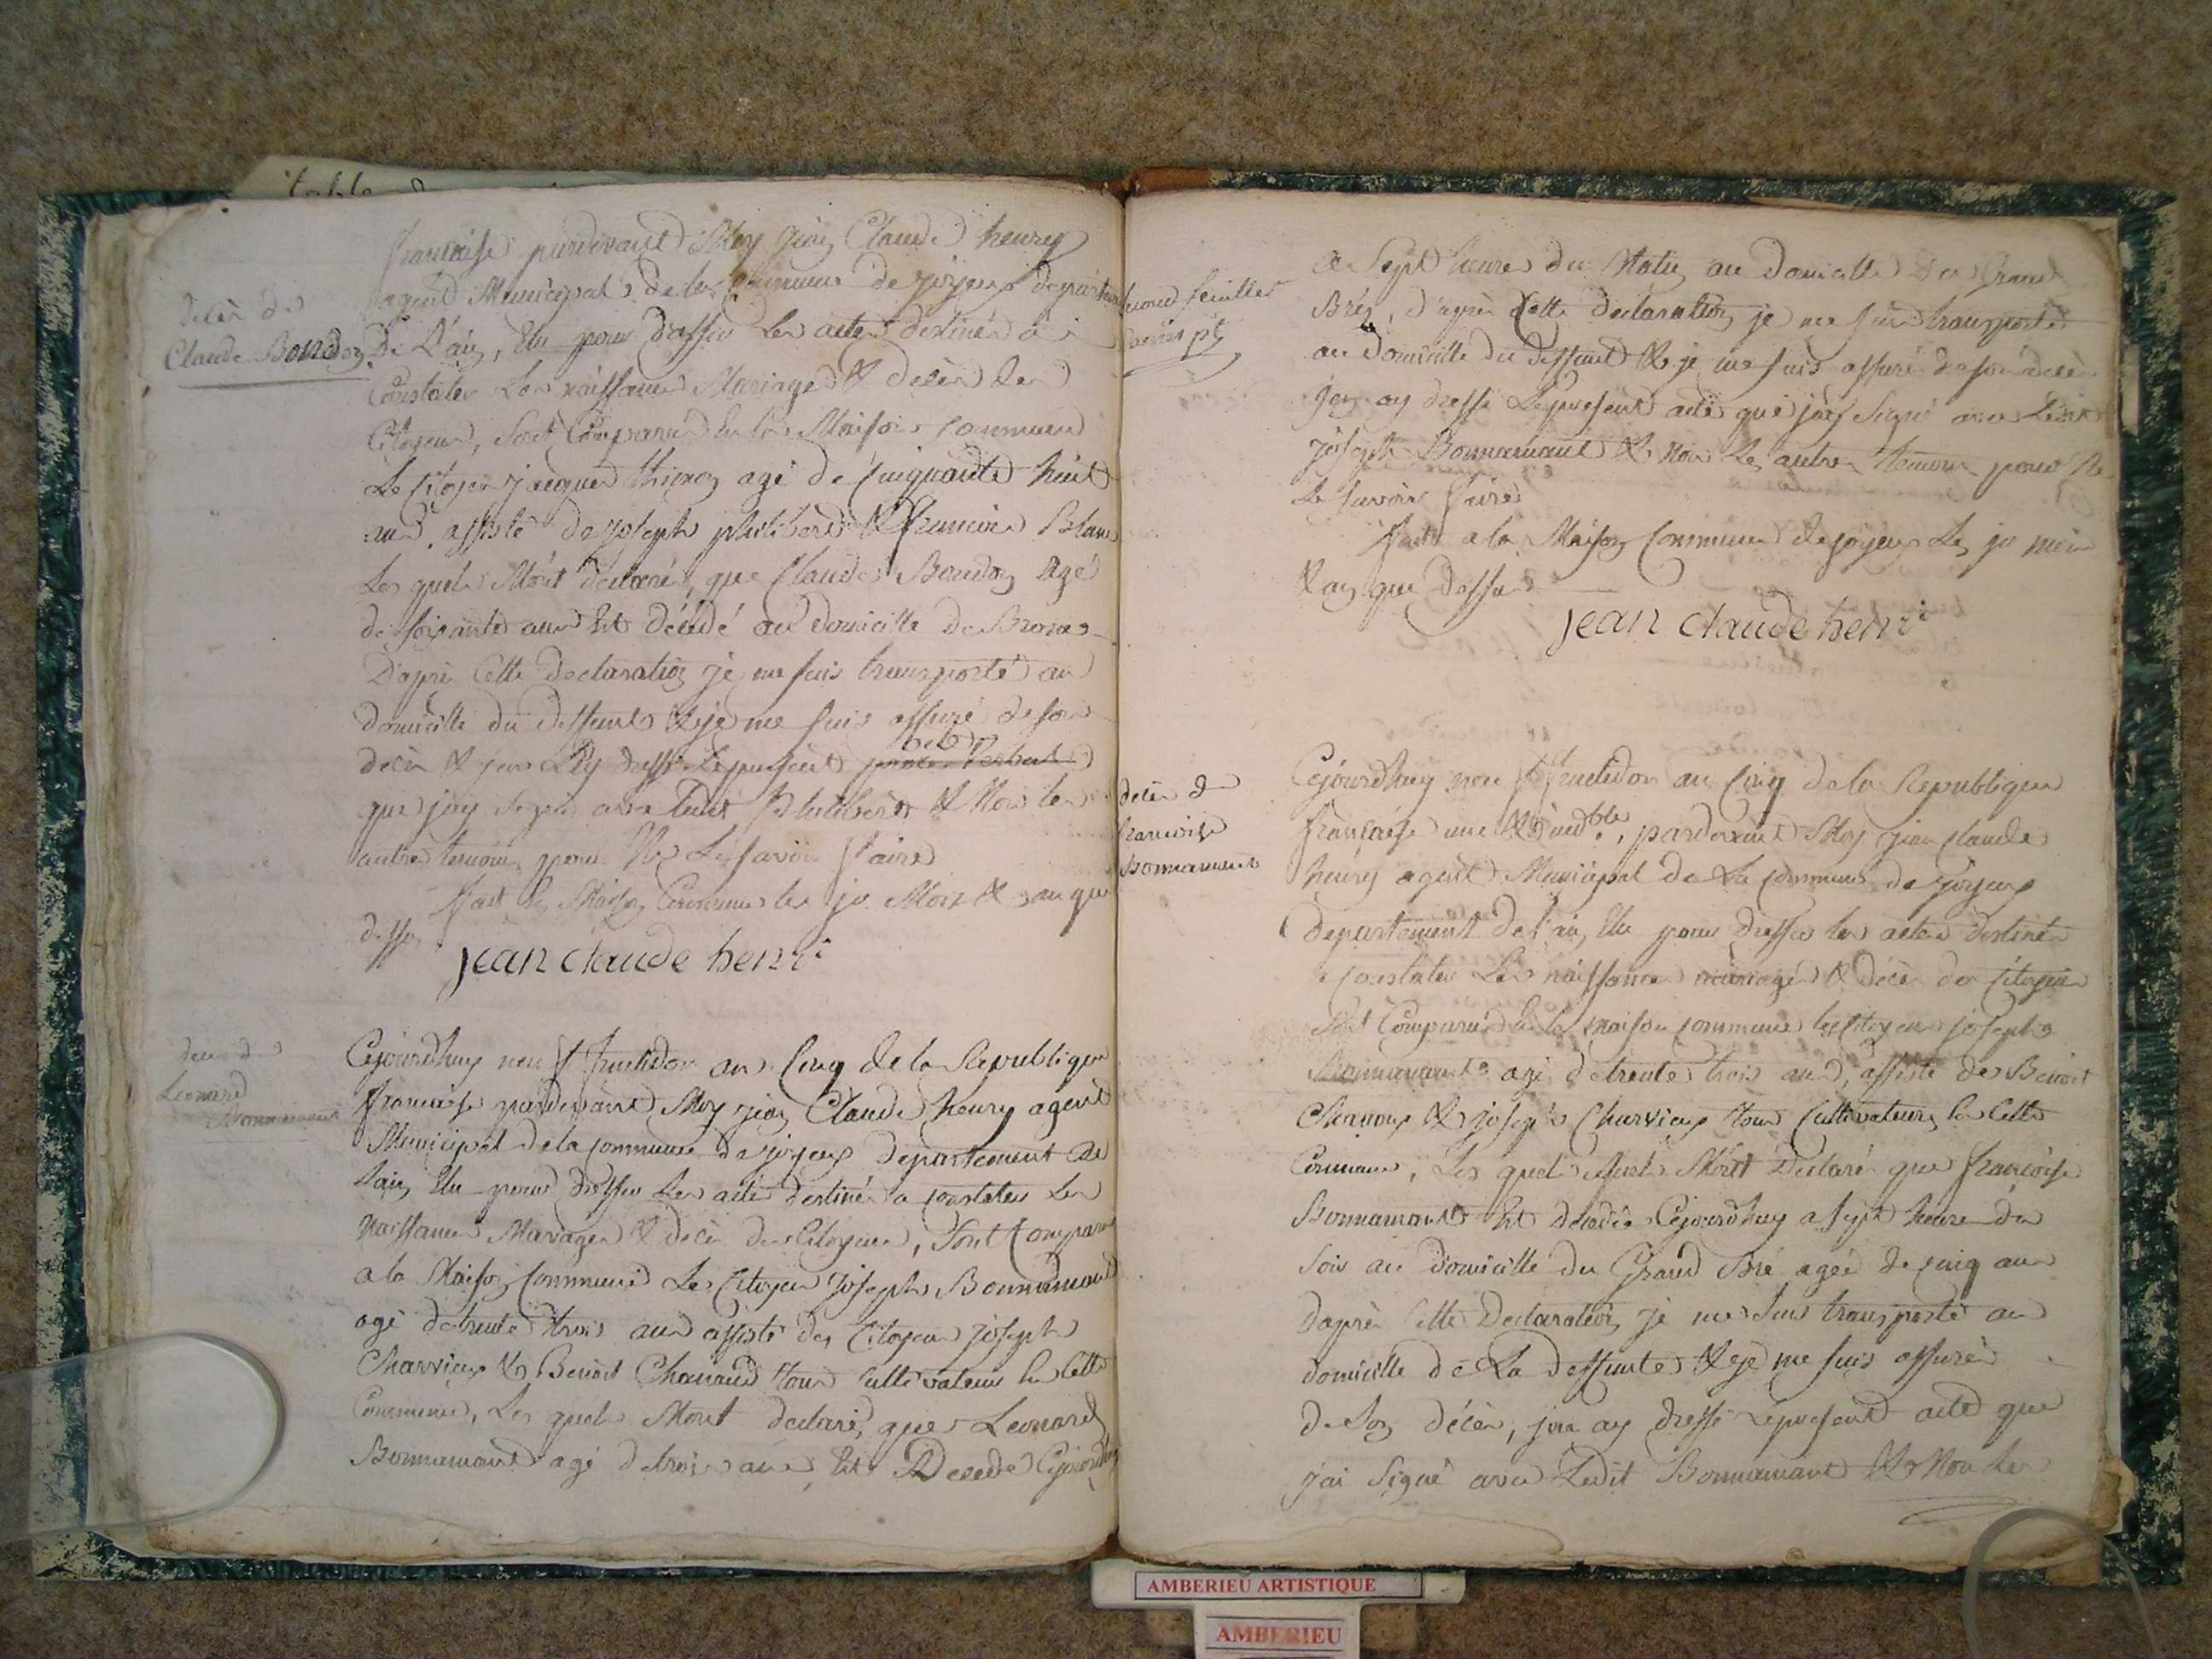 table
française pardevant Moy Jean Claude henry
agent Municipal de la Commune de joyeux departement
décès de
Claude Boudon
De L'ain, Elu pour dresser les actes destinés à
Constater Les naissances Mariages & décès des
Citoyens, Sont Comparus En la Maison Commune
Le Citoyen jacques agé de Cinquante huit
ans, assisté de joseph philibert & francois Blanc
Les quels M'ont declaré, que Claude Boudon Agé
de soixante ans Est décédé au domicille de
D'apres Cette declaration je me suis transporté au
domicille du deffunt & je me suis assuré de son
acte
décès & jen ay dressé Le present procès Verbal
que jay signé avec ledit philibert & Non les
autres temoins pour Ne Le savoir faire
fait En Maison Commune les jr Mois & an que
dessus
jean claude henri
décès de
Leonard
Bonnamant
Cejourdhuy neuf fructidor an Cinq de la Republique
francaise pardevant Moy jean Claude henry agent
Municipal de la Commune de joyeux departement de
Lain Elu pour dresser Les actes destinés a constater Les
Naissances Mariages & décès des Citoyens, Sont Comparus
a la Maison Commune Le Citoyen Joseph Bonnamant
agé de trente trois ans assisté des Citoyens joseph
Charvieux & Benoit Chanaud tous cultivateurs En Cette
Commune, Les quels M'ont declaré, que Leonard
Bonnamant agé de trois ans, Est Decedé Cejourdhuy
second feuillet
a Sept heures du Matin au domicille du Grand
Bré, d'après Cette declaration je me suis transporté
au domicille du deffunt & je me suis assuré de son décès
Jen ay dressé Le present acte que jay Signé avec Ledit
joseph Bonnamant & Non Les autres temoins pour Ne
Le savoir faire
fait a la Maison Commune de joyeux Les jr mois
& an que dessus
jean claude henri
décès de
francoise
Bonnamant
Cejourdhuy neuf fructidor an Cinq de la Republique
française une & indble, pardevant Moy jean claude
henry agent Municipal de La Commune de joyeux
Departement de l'ain, Elu pour dresser les actes destinés
a constater Les naissances mariages & décès des Citoyens
Sont Comparus En la maison commune les Citoyens joseph
Bonnamant agé de trente trois ans, assisté de Benoit
Chanoux & joseph Charvieux tous Cultivateurs En Cette
Commune, Les quels M'ont Declaré que françoise
Bonnamant Est décédée Cejourdhuy a sept heures du
soir au domicille du Grand Bré agée de cinq ans
daprès Cette Declaration je me suis transporté au
domicille de La deffunte & je me suis assuré
de Son décès, jen ay dressé le present acte que
j'ai Signé avec Ledit Bonnamant & Non Les
AMBERIEU ARTISTIQUE
AMBERIEU